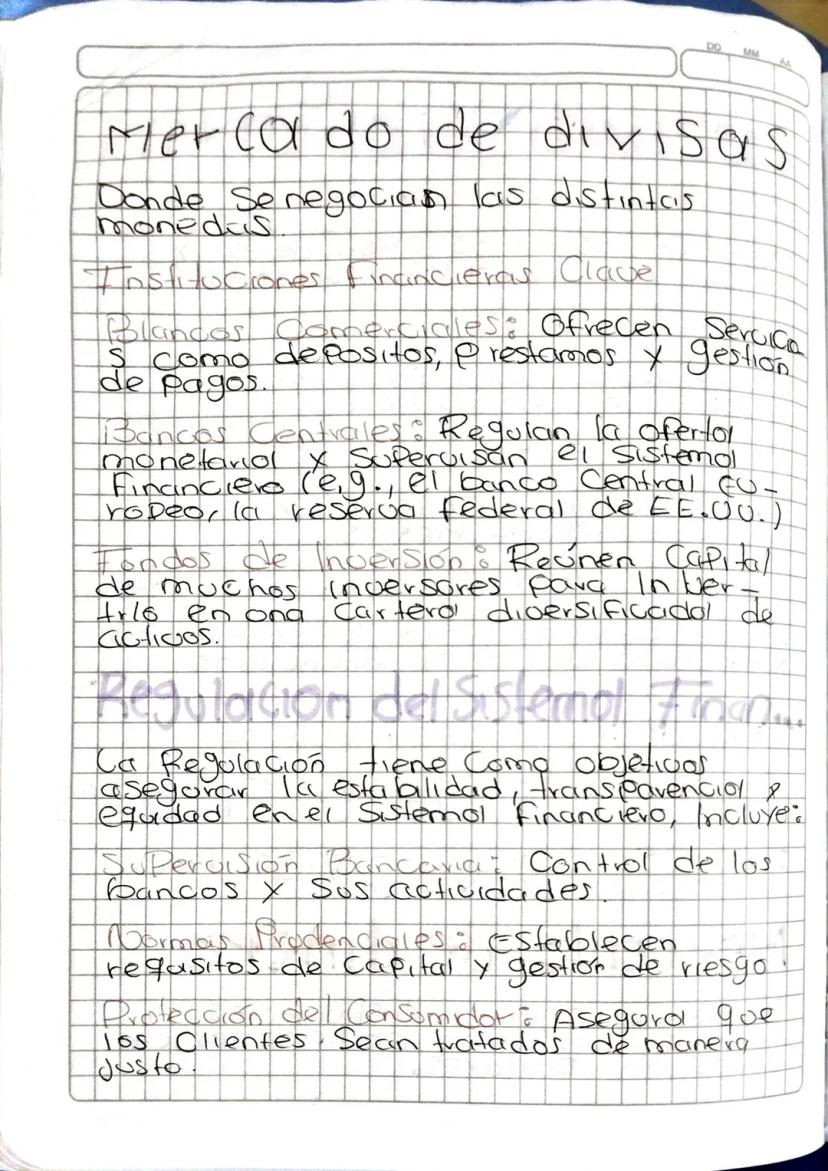 DD MM AA
Mercado de divisas
Donde se negocian las distintas
monedas.
Instituciones Financieras Clave
Blancos Comerciales: Ofrecen Servicio
s como depositos, Prestamos y gestión
de pagos.
Bancos Centrales: Regulan la oferta
monetaria y supervisan el sistema
financiero (e,g., el banco Central eu-
ropeo, la reserva federal de EE.UU.)
Fondos de Inversión: Reúnen Capital
de muchos inversores para Inver-
trlo en una cartera diversificada de
activos.
Regulacion del Sistema Finan...
La Regulación tiene como objetivos
asegurar la estabilidad, transparencia y
equidad en el Sistema financiero, Incluye:
Supervisión Bancaria: Control de los
bancos y sus actividades.
Normas Prudenciales: Establecen
requsitos de Capital y gestión de riesgo.
Protección del Consumidor: Asegura que
los Clientes Sean tratados de manera
justo.